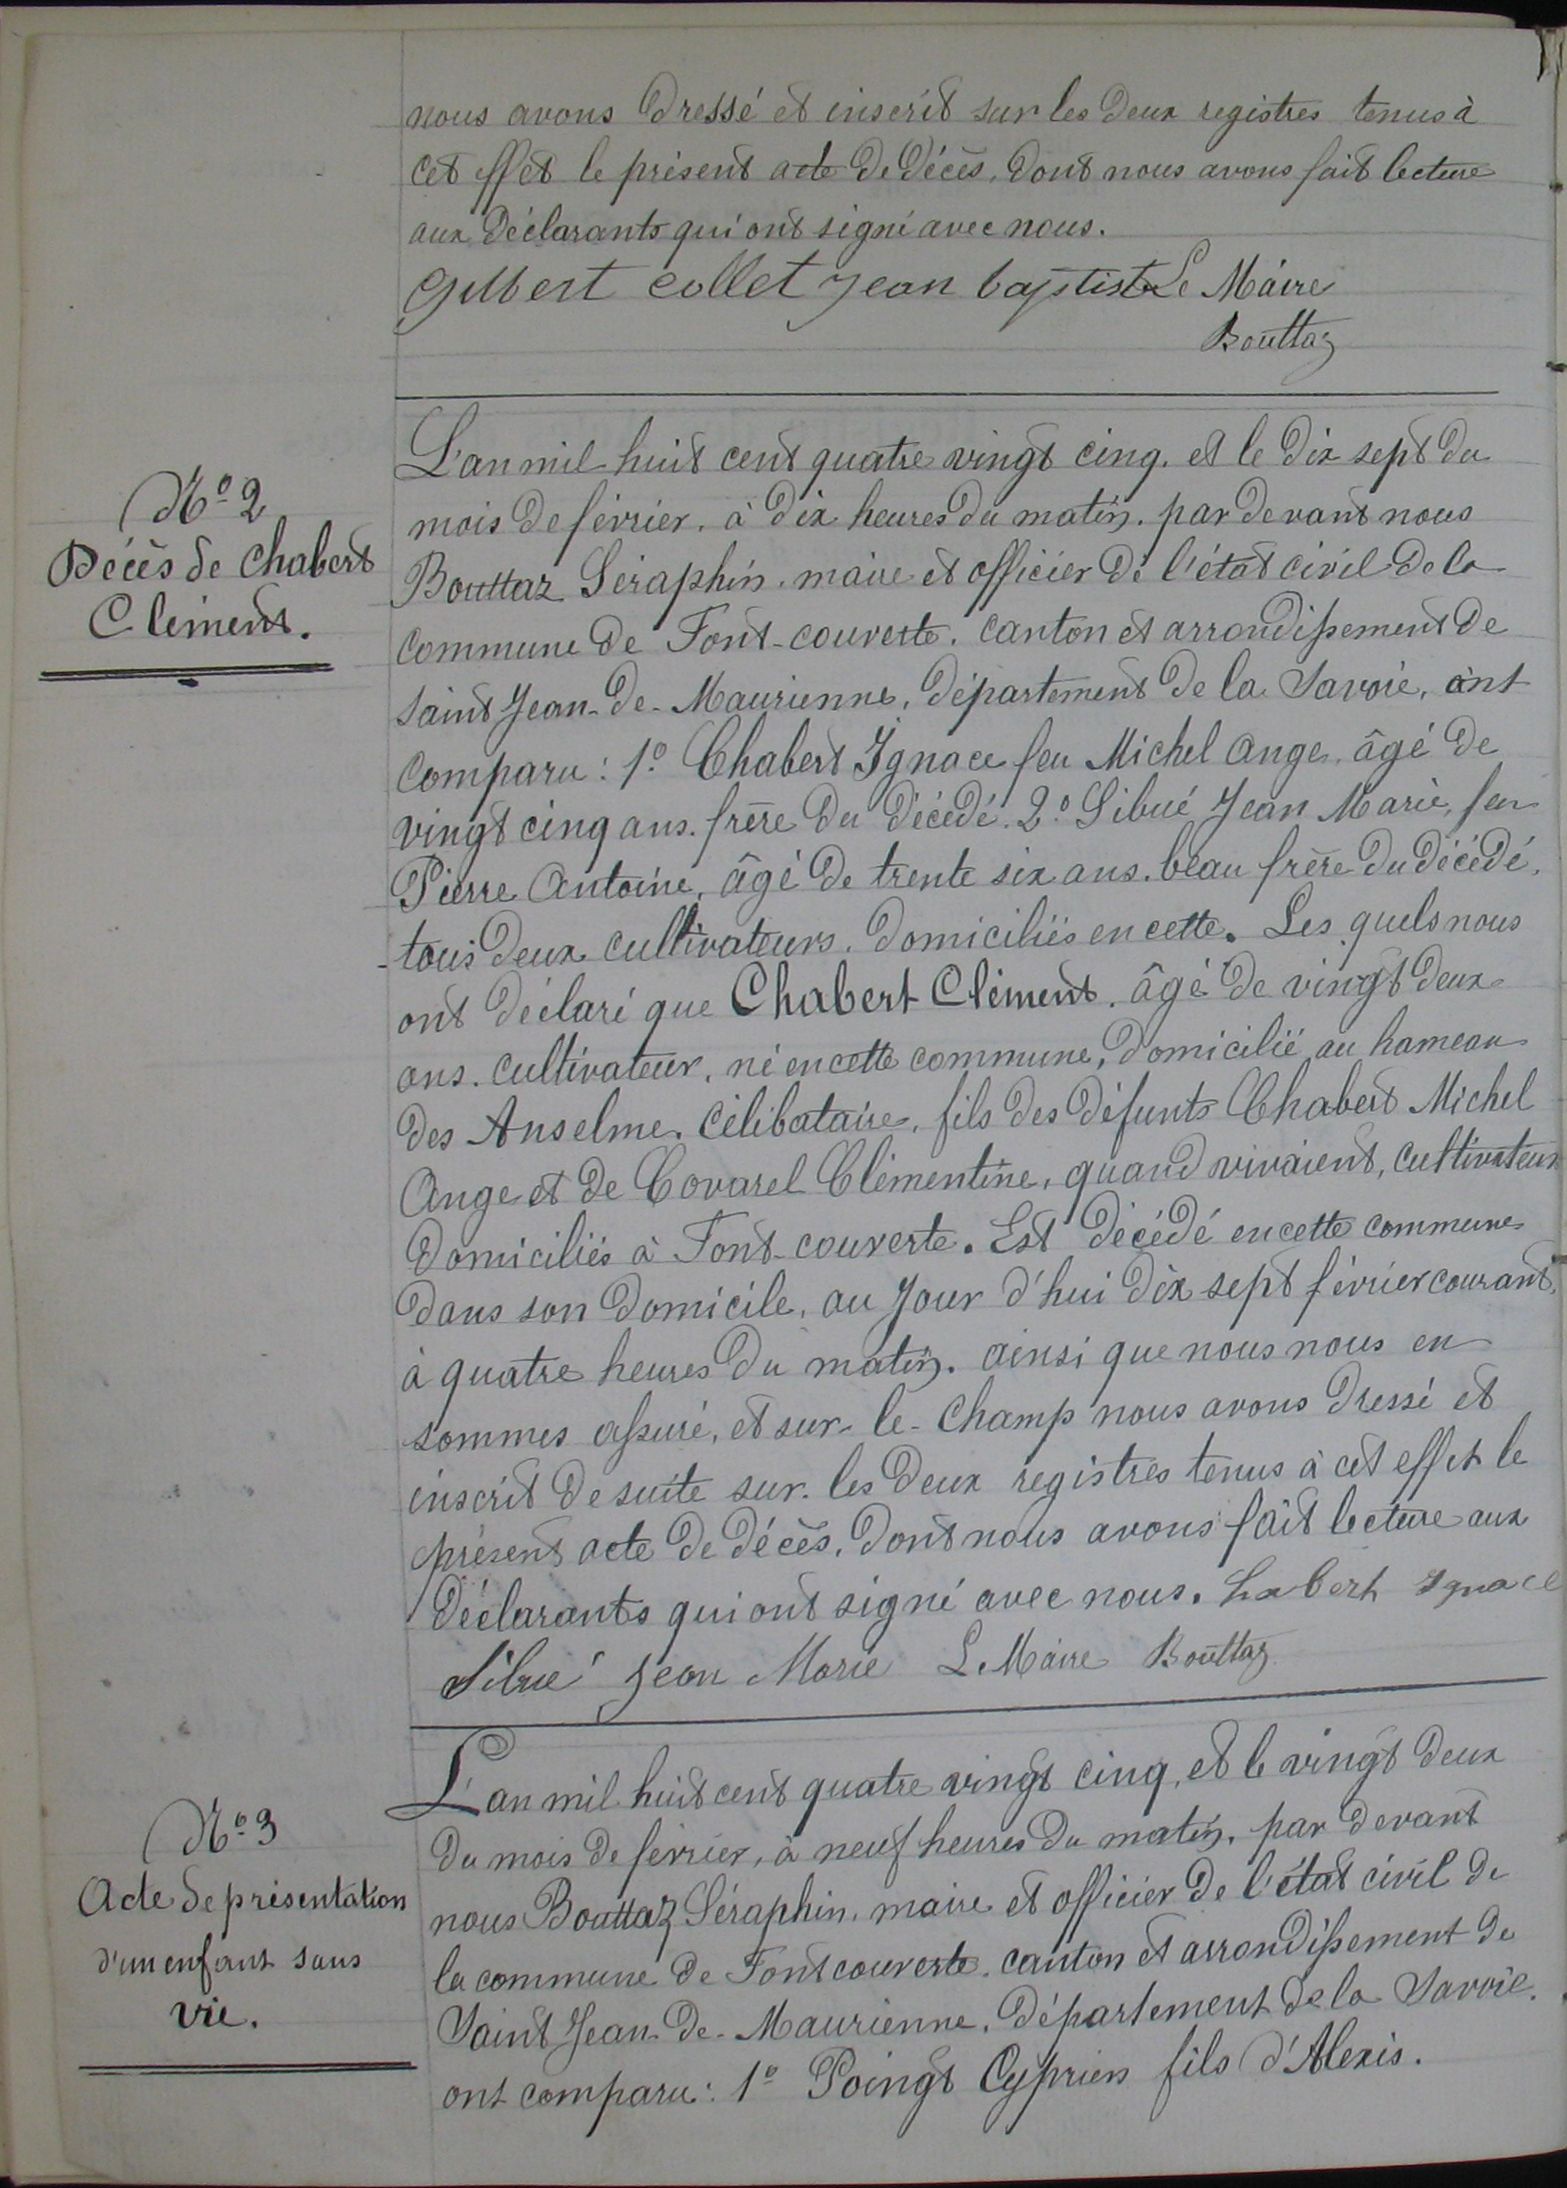 nous avons dressé et inscrit sur les deux registres tenus à
cet effet le présent acte de décès, dont nous avons fait lecture
aux déclarants qui ont signé avec nous.
Gilbert collet jean baptiste Le Maire
Bouttaz
N° 2
Décès de Chabert
Clément.
L'an mil huit cent quatre vingt cinq. et le dix sept du
mois de février. à dix heures du matin. par devant nous
Bouttaz Séraphin. maire et officier de l'état civil de la
commune de Font-couverte. canton et arrondissement de
saint Jean-de-Maurienne, département de la Savoie, ont
comparu : 1° Chabert Ignace feu Michel Ange, âgé de
vingt cinq ans. frère du décédé. 2° Sibué Jean Marie, feu
Pierre Antoine, âgé de trente six ans. beau frère du décédé,
tous deux cultivateurs. domiciliés en cette. Les quels nous
ont déclaré que Chabert Clément. âgé de vingt deux
ans. cultivateur, né en cette commune, domicilié au hameau
des Anselme. Célibataire, fils des défunts Chabert Michel
Ange et de Covarel Clémentine, quand vivaient, cultivateurs
domiciliés à Font-couverte. Est décédé en cette commune
dans son domicile, au jour d'hui dix sept février courant,
à quatre heures du matin. ainsi que nous nous en
sommes assuré, et sur-le-champ nous avons dressé et
inscrit de suite sur les deux registres tenus à cet effet le
présent acte de décès, dont nous avons fait lecture aux
déclarants qui ont signé avec nous. habert Ignace
Sibué Jean Marie Le Maire Bouttaz
N° 3
Acte de présentation
d'un enfant sans
vie.
L'an mil huit cent quatre vingt cinq, et le vingt deux
du mois de février, à neuf heures du matin, par devant
nous Bouttaz Séraphin. maire et officier de l'état civil de
la commune de Fontcouverte. canton et arrondissement de
Saint Jean-de-Maurienne, département de la Savoie.
ont comparu : 1° Poingt Cyprien fils d'Alexis.